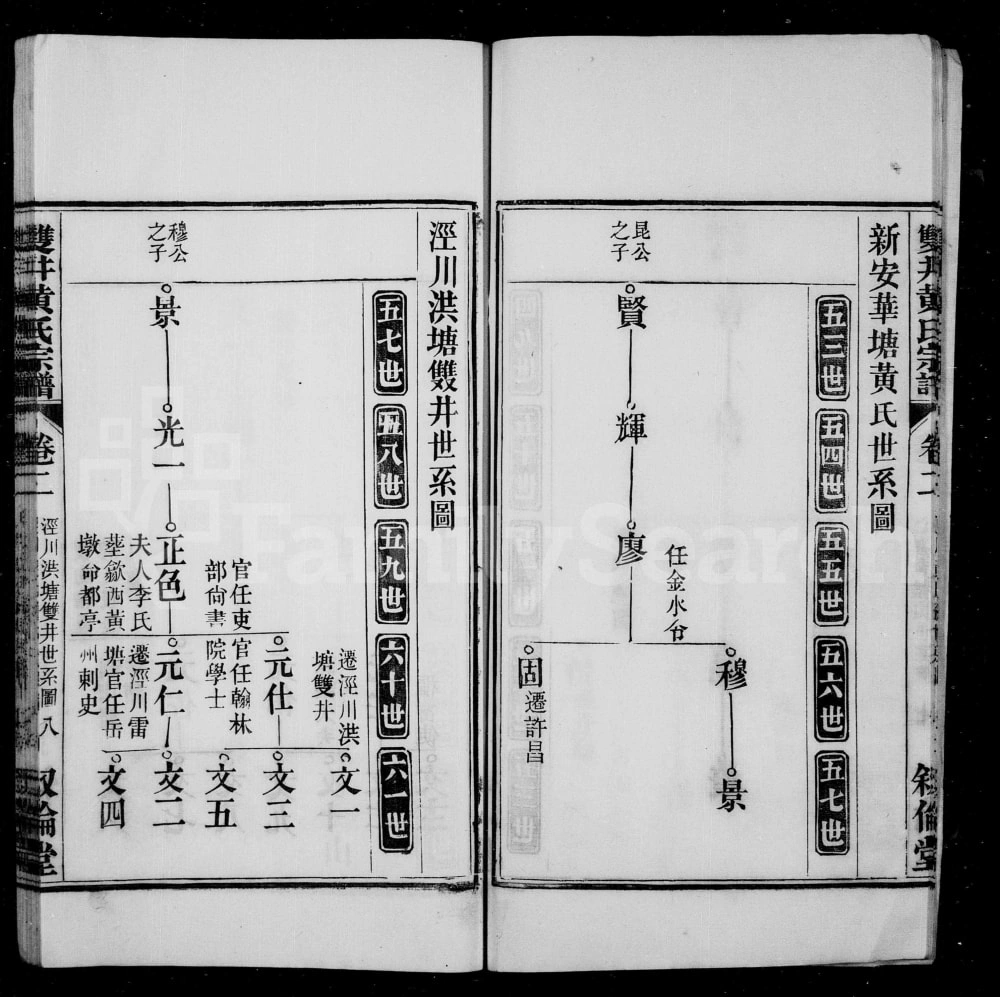 雙井黃氏宗譜
卷二
敘倫堂
新安華塘黃氏世系圖
五三世
五四世
五五世
五六世
五七世
昆公
之子
賢
輝
廖
任金水令
穆
景
固
遷許昌
涇川洪塘雙井世系圖
五七世
五八世
五九世
六十世
六一世
穆公
之子
景
光一
正色
夫人李氏
塟歙西黃
墩命都亭
官任吏
部尙書
元仕
官任翰林
院學士
元仁
遷涇川雷
塘官任岳
州刺史
文一
遷涇川洪
塘雙井
文三
文五
文二
文四
雙井黃氏宗譜
卷二
涇川洪塘雙井世系圖
八
敘倫堂
FamilySearch